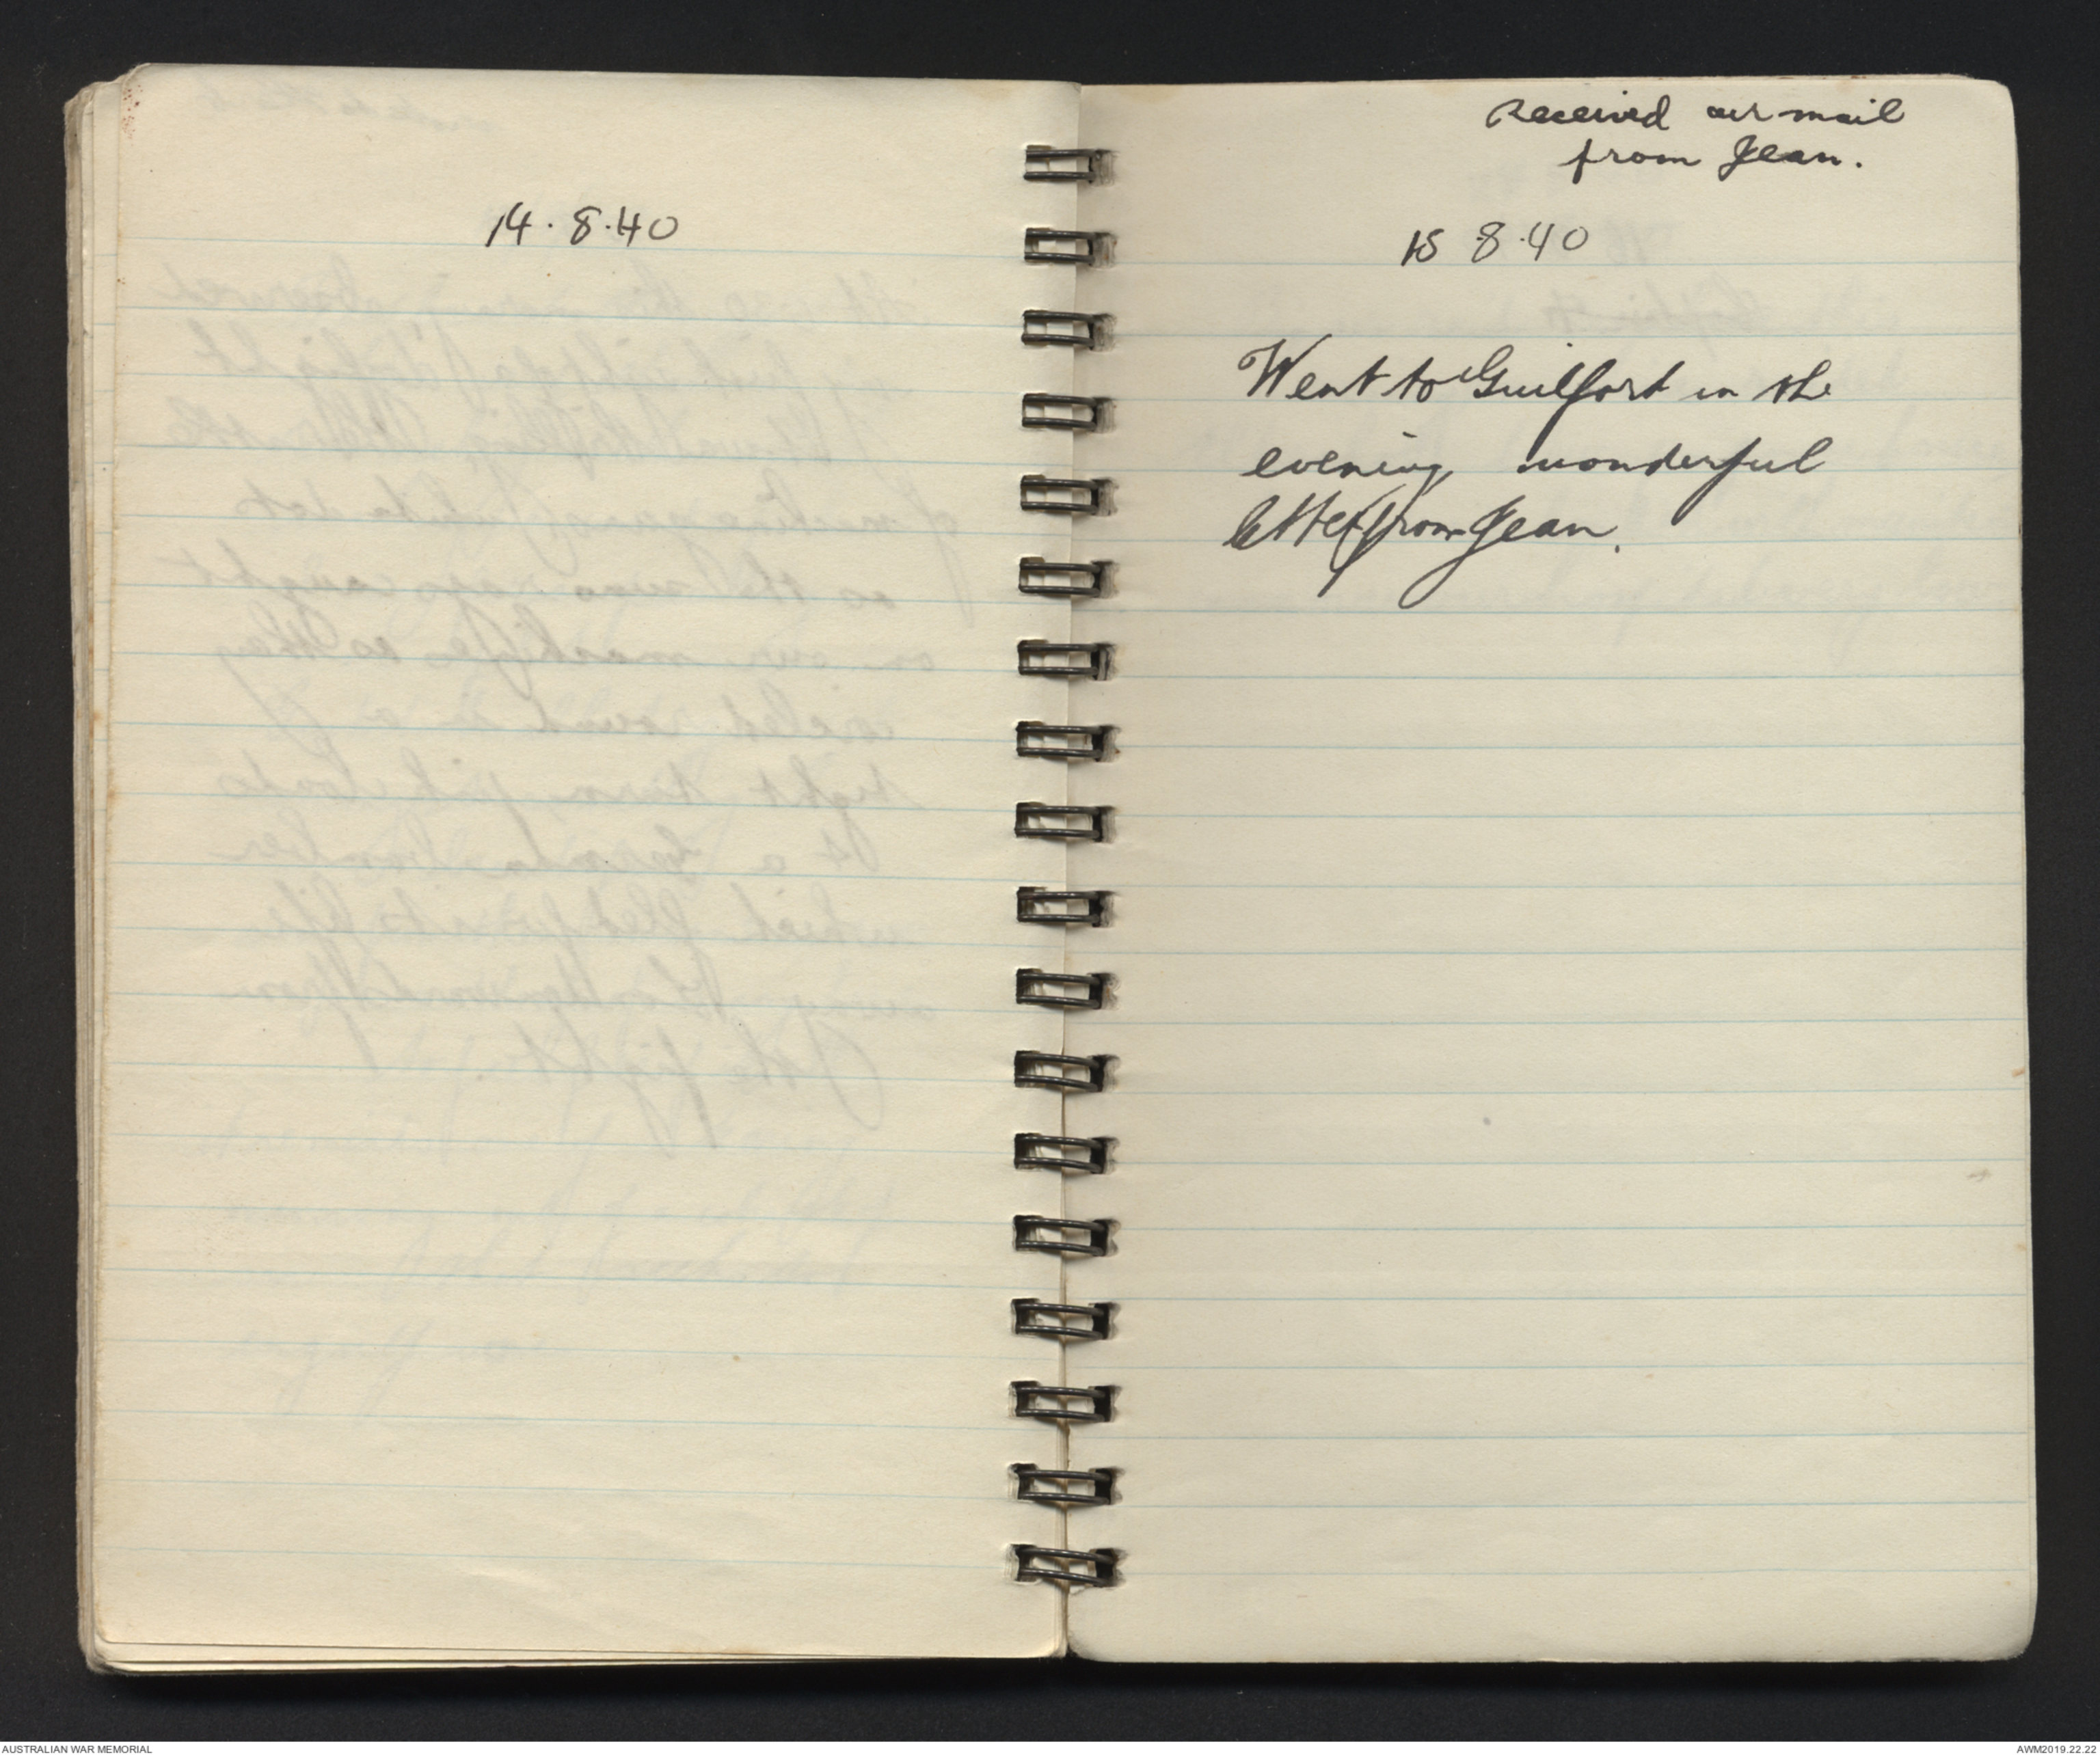 14.8.40
Received air mail
from Jean.
15 8.40
Went to Guilfort in the
evening, wonderful
letter from Jean.
AUSTRALIAN WAR MEMORIAL
AWM2019.22.22